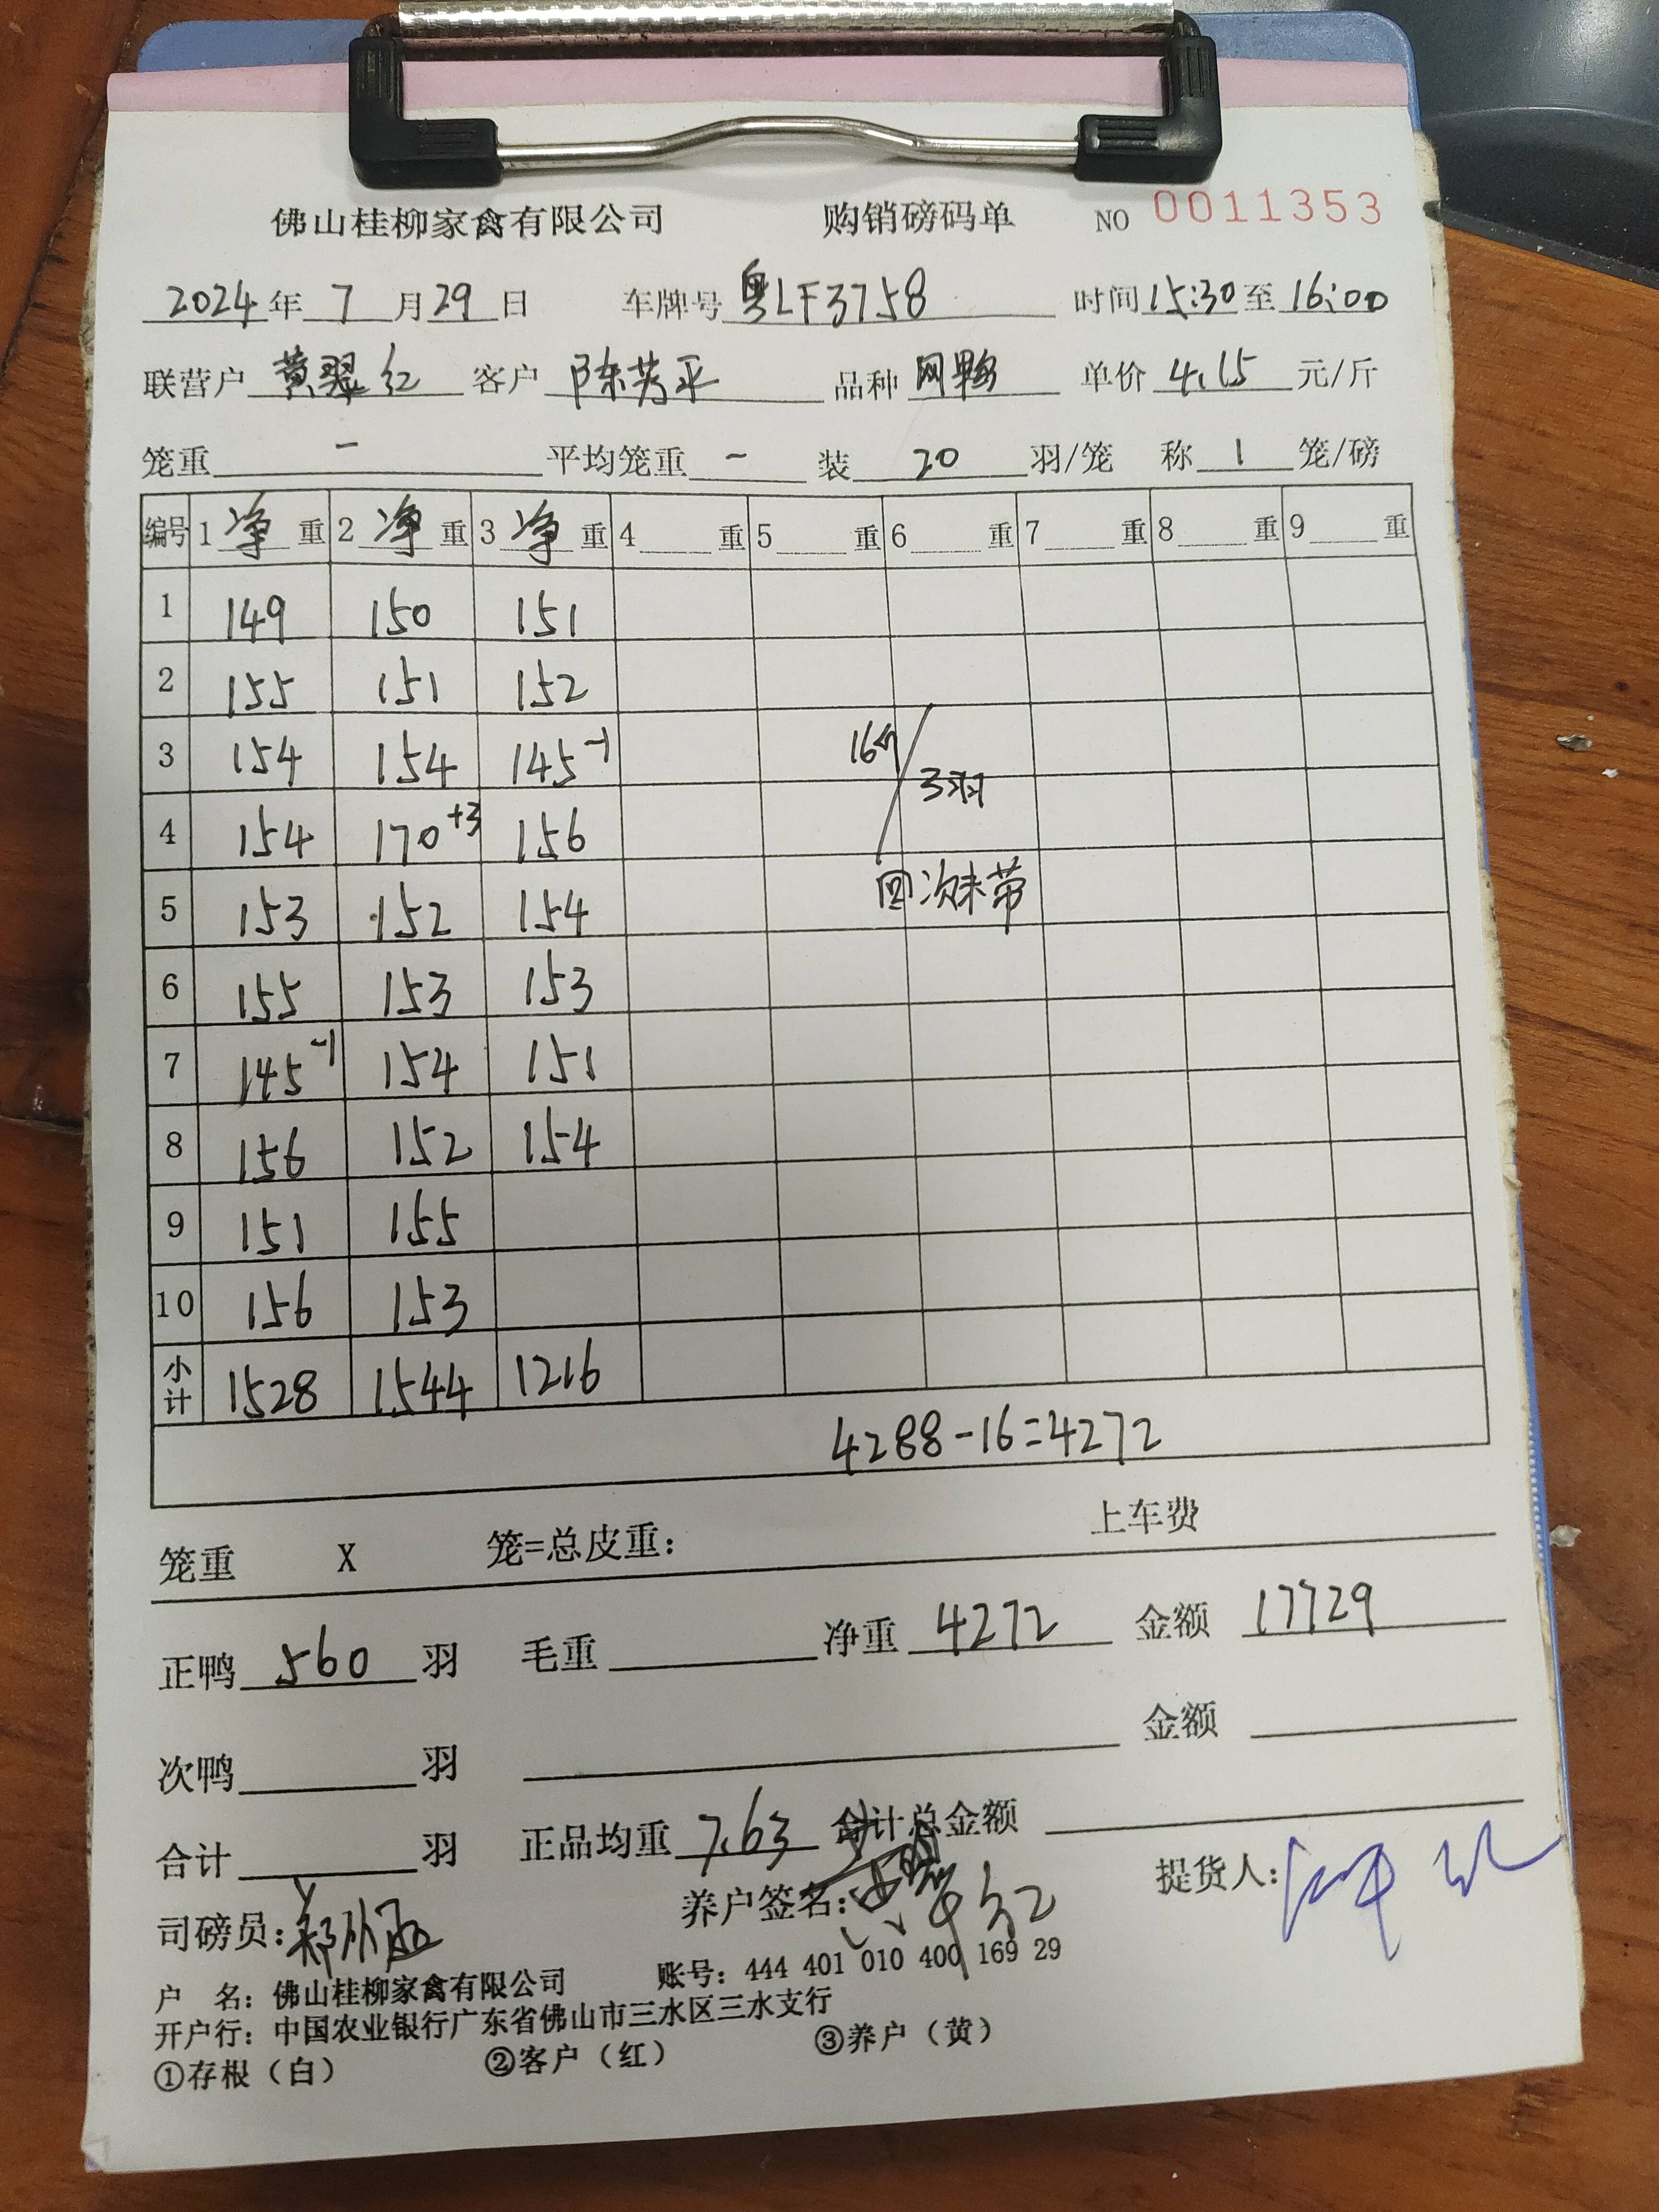 佛山桂柳家禽有限公司 购销磅码单 NO 0011353
2024年 7 月 29 日 车牌号 粤LF3758 时间 15:30 至 16:00
联营户 黄翠红 客户 陈芳平 品种 网鸭 单价 4.15 元/斤
笼重 - 平均笼重 - 装 20 羽/笼 称 1 笼/磅
编号 1 净 重 2 净 重 3 净 重 4 重 5 重 6 重 7 重 8 重 9 重
1 149 150 151
2 155 151 152
3 154 154 145-1 16斤/3羽
4 154 170+3 156
5 153 152 154 回次未带
6 155 153 153
7 145-1 154 151
8 156 152 154
9 151 155
10 156 153
小计 1528 1544 1216
4288-16=4272
笼重 X 笼=总皮重: 上车费
正鸭 560 羽 毛重 净重 4272 金额 17729
次鸭 羽 金额
合计 羽 正品均重 7.63 合计总金额
司磅员: 养户签名: 提货人:
户 名: 佛山桂柳家禽有限公司 账号: 444 401 010 400 169 29
开户行: 中国农业银行广东省佛山市三水区三水支行
①存根(白) ②客户(红) ③养户(黄)